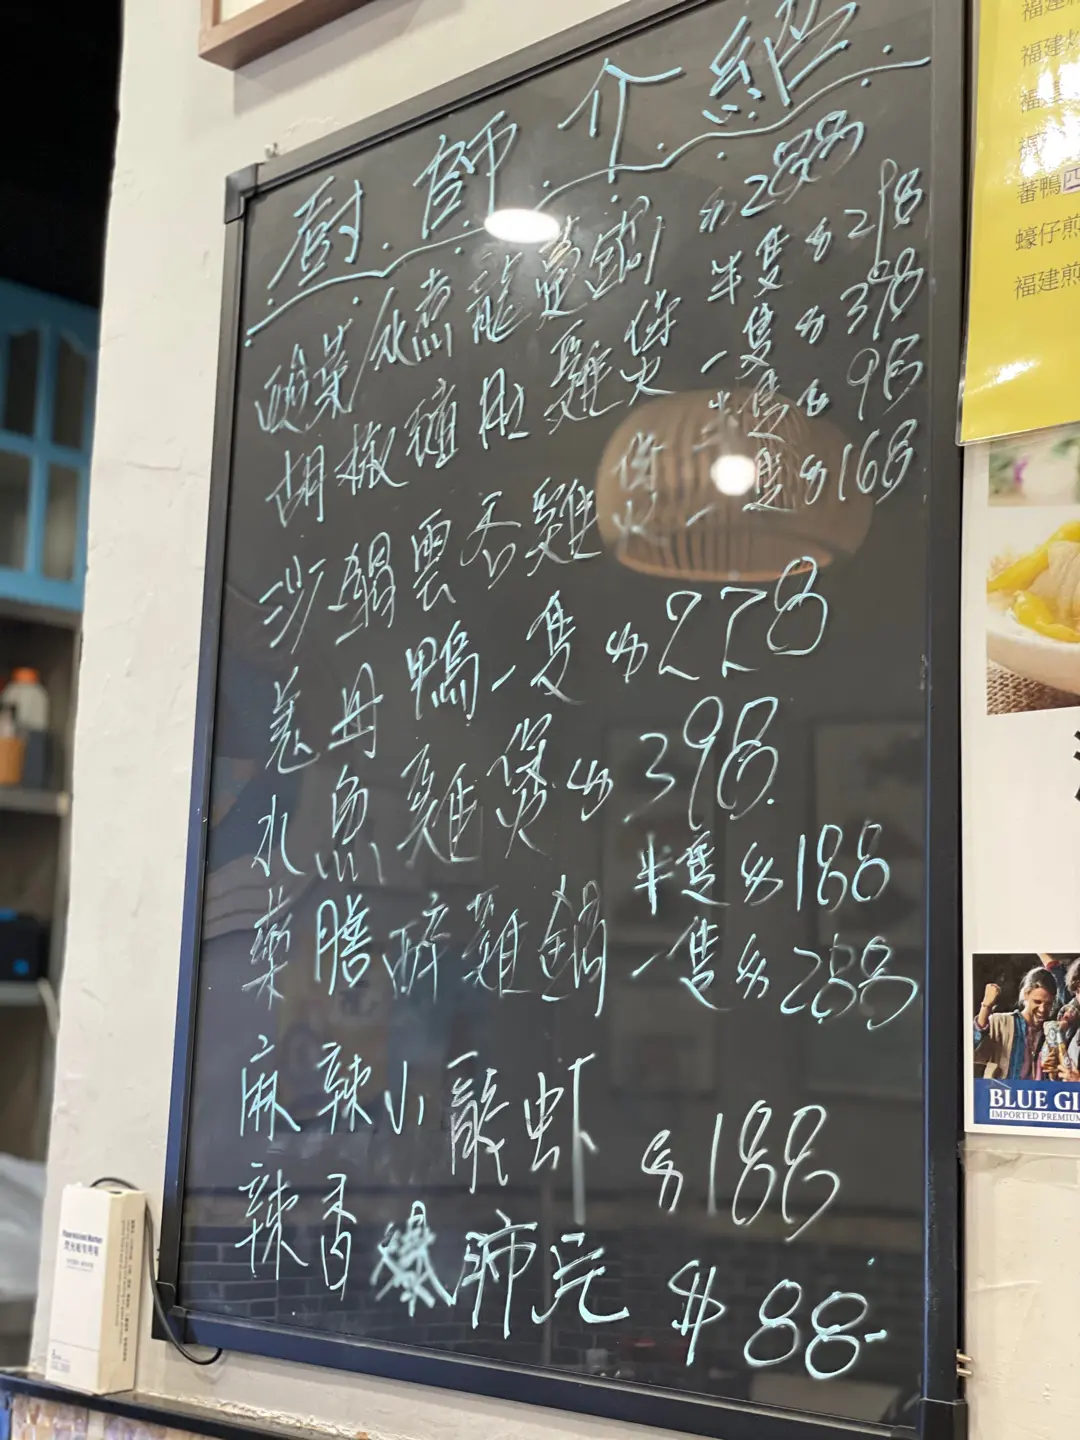 廚師介紹
酸菜/水煮龍躉鍋 $288
胡椒豬肚雞煲 半隻 $218
一隻 $398
沙鍋雲吞雞煲 半隻 $98
一隻 $168
羗母鴨一隻 $228
水魚雞煲 $398
藥膳醉雞鍋 半隻 $188
一隻 $288
麻辣小龍虾 $188
辣香爆肺 $88
福建
福建炒
福建
蕃鴨
蠔仔煎
福建煎
BLUE GI
IMPORTED PREMIUM
Fluorescent Marker